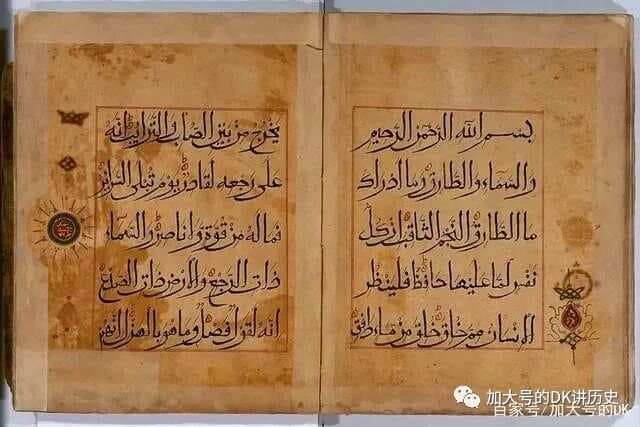 بسم الله الرحمن الرحيم
والسماء والطارق وما أدراك
ما الطارق النجم الثاقب إن كل
نفس لما عليها حافظ فلينظر
الإنسان مم خلق خلق من ماء دافق
يخرج من بين الصلب والترائب إنه
على رجعه لقادر يوم تبلى السرائر
فما له من قوة ولا ناصر والسماء
ذات الرجع والأرض ذات الصدع
إنه لقول فصل وما هو بالهزل إنهم
加大号的DK讲历史
百家号/加大号的DK